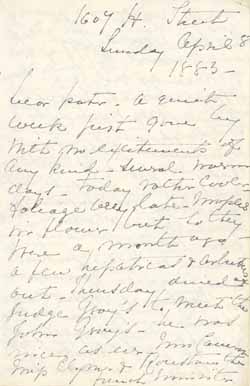 1607 H. Street
Sunday April 8
1883 -
Dear pater. A quiet
week just gone by
with no excitements of
any kind - Several warm
days - today rather cool -
foliage very late - maples
in flower but so they
were a month ago
a few hepaticas &
out - Thursday dined at
Judge Gray's to meet the
John Gray's - he was
nice as ever Mrs Cameron
Miss &
French Minister